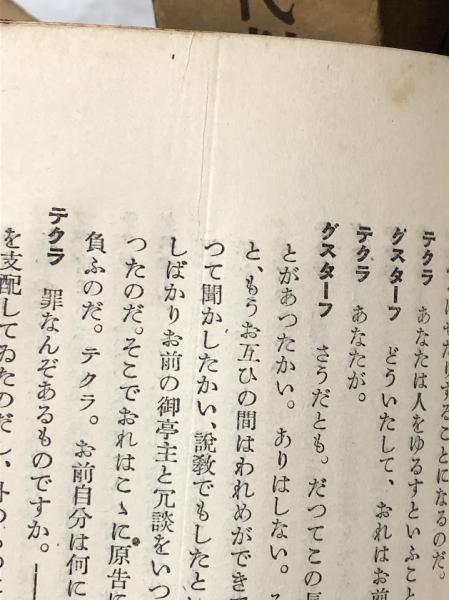 はせたりすることになるのだ。
テクラ　あなたは人をゆるすといふこと
グスターフ　どういたして、おれはお前
テクラ　あなたが。
グスターフ　さうだとも。だつてこの長
とがあつたかい。ありはしない。
と、もうお互ひの間はわれめができて
つて聞かしたかい、説教でもしたとい
しばかりお前の御亭主と冗談をいつ
つたのだ。そこでおれはこゝに原告に
負ふのだ。テクラ。お前自分は何に
テクラ　罪なんぞあるものですか。――
を支配してゐたのだし、外のものに